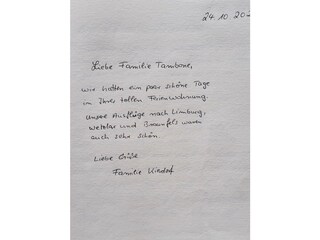 24.10.20
Liebe Familie Tambone,
wir hatten ein paar schöne Tage
in Ihrer tollen Ferienwohnung.
Unsere Ausflüge nach Limburg,
Wetzlar und Braunfels waren
auch sehr schön.
Liebe Grüße
Familie